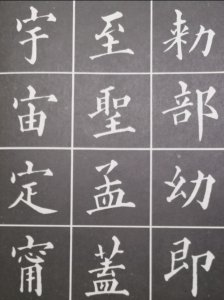 勅部幼即
至聖孟蓋
宇宙定甯